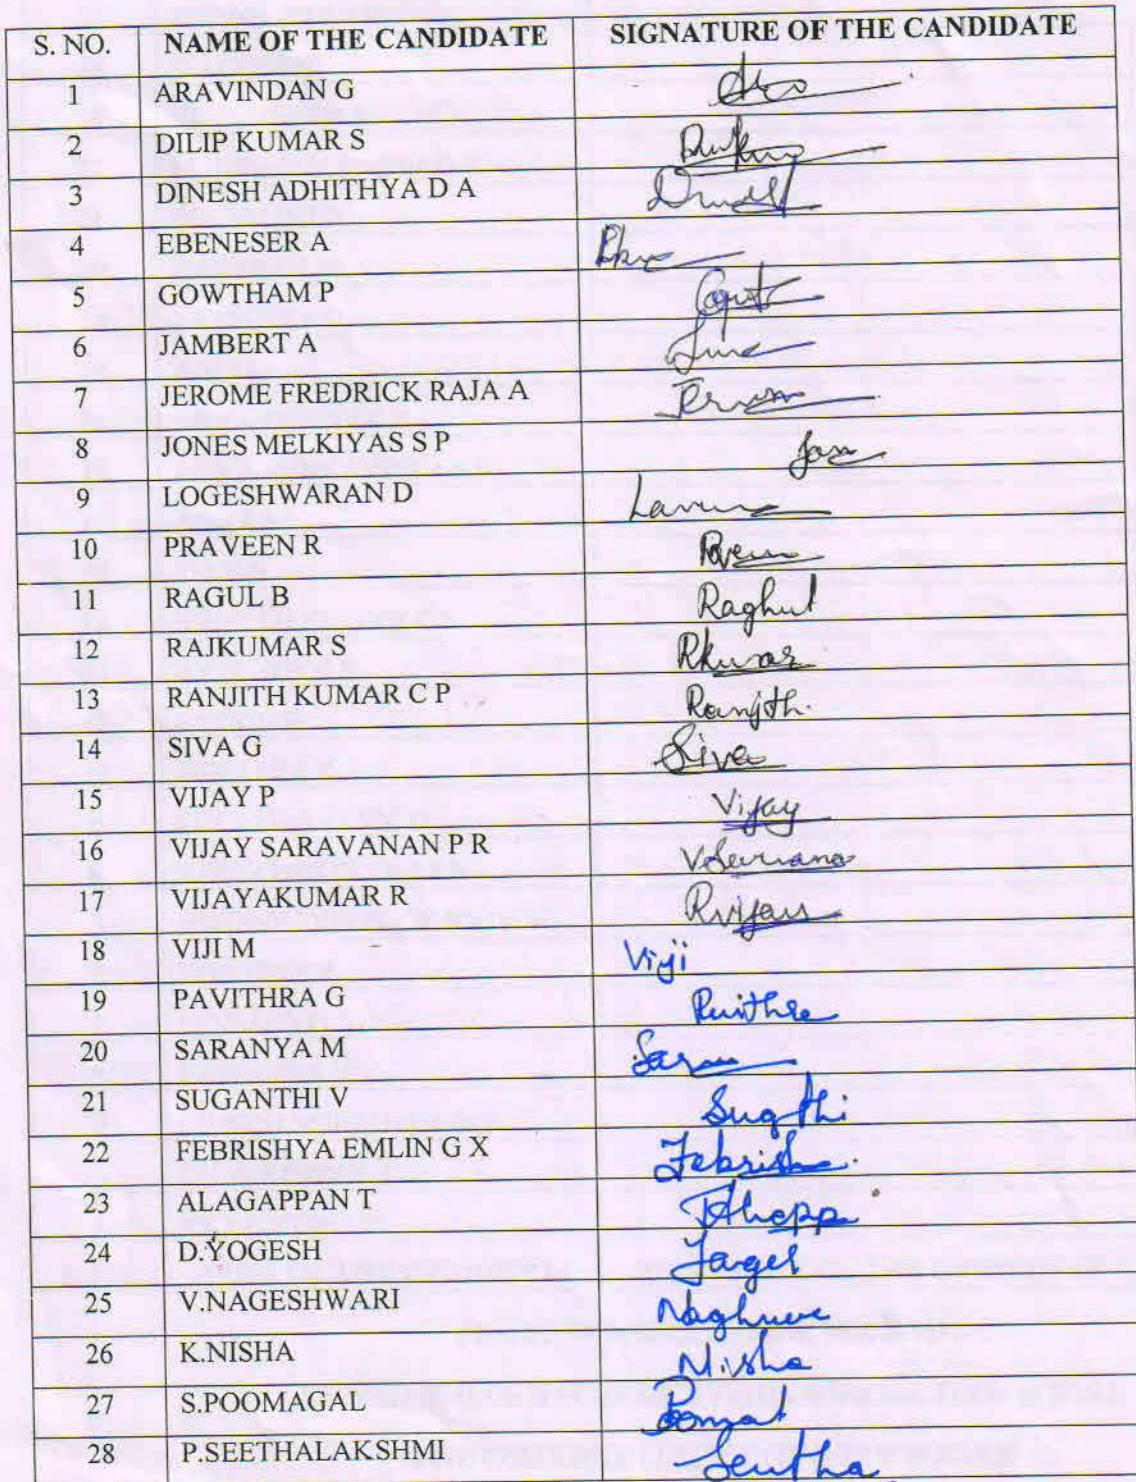 S. NO. NAME OF THE CANDIDATE SIGNATURE OF THE CANDIDATE
1 ARAVINDAN G
2 DILIP KUMAR S
3 DINESH ADHITHYA D A
4 EBENESER A
5 GOWTHAM P
6 JAMBERT A
7 JEROME FREDRICK RAJA A
8 JONES MELKIYAS S P
9 LOGESHWARAN D
10 PRAVEEN R
11 RAGUL B Raghul
12 RAJKUMAR S
13 RANJITH KUMAR C P Ranjith.
14 SIVA G Siva
15 VIJAY P Vijay
16 VIJAY SARAVANAN P R
17 VIJAYAKUMAR R
18 VIJI M Viji
19 PAVITHRA G
20 SARANYA M
21 SUGANTHI V Sugthi
22 FEBRISHYA EMLIN G X
23 ALAGAPPAN T
24 D.YOGESH
25 V.NAGESHWARI
26 K.NISHA Nisha
27 S.POOMAGAL
28 P.SEETHALAKSHMI